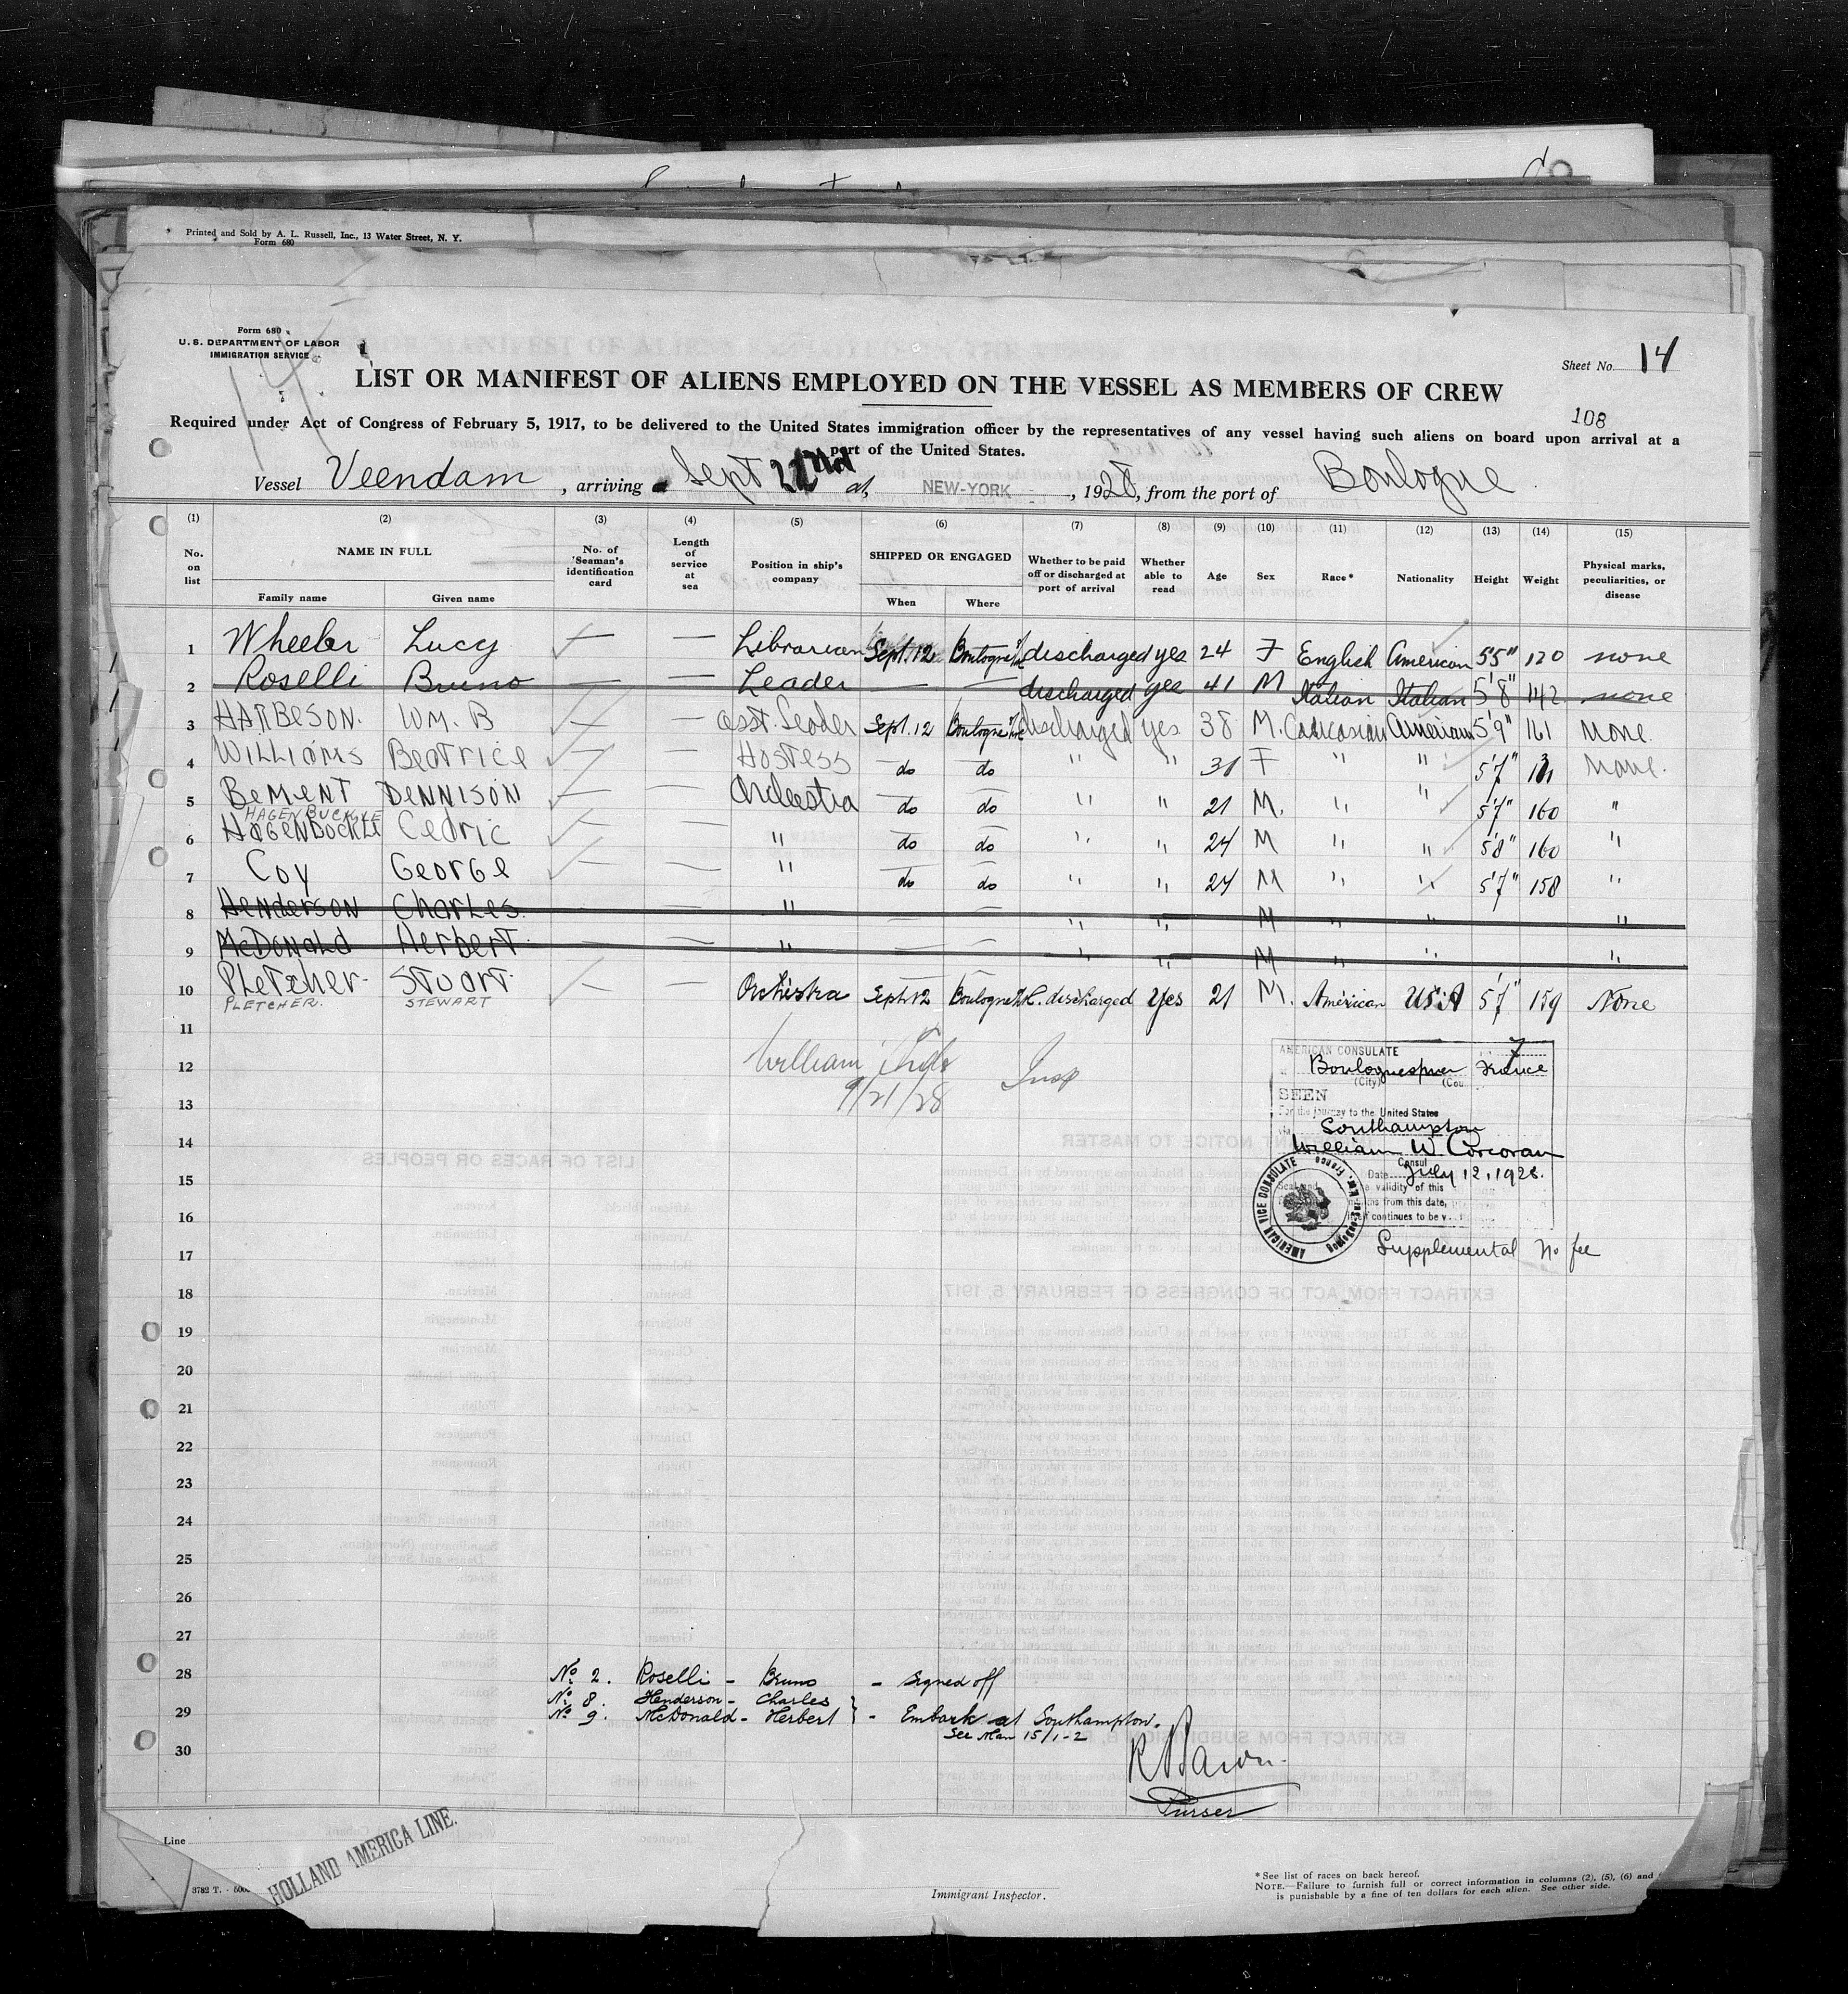 Printed and Sold by A. L. Russell, Inc., 13 Water Street, N. Y.
Form 680
Form 680
U. S. DEPARTMENT OF LABOR
IMMIGRATION SERVICE
Sheet No. 14
LIST OR MANIFEST OF ALIENS EMPLOYED ON THE VESSEL AS MEMBERS OF CREW
108
Required under Act of Congress of February 5, 1917, to be delivered to the United States immigration officer by the representatives of any vessel having such aliens on board upon arrival at a
port of the United States.
Vessel Veendam, arriving Sept 22nd at, NEW-YORK, 1928, from the port of Boulogne
(1) (2) (3) (4) (5) (6) (7) (8) (9) (10) (11) (12) (13) (14) (15)
No. on list NAME IN FULL Family name Given name No. of Seaman's identification card Length of service at sea Position in ship's company SHIPPED OR ENGAGED When Where Whether to be paid off or discharged at port of arrival Whether able to read Age Sex Race* Nationality Height Weight Physical marks, peculiarities, or disease
1 Wheeler Lucy — — Librarian Sept. 12 Boulogne discharged yes 24 F English American 5'5" 120 none
2 Roselli Bruno Leader — — discharged yes 41 M Italian Italian 5'8" 142 none
3 HARBESON. WM. B — — asst. Leader Sept. 12 Boulogne discharged yes 38 M. Caucasian American 5'9" 161 None
4 WILLIAMS BEATRICE — — HOSTESS do do " " 31 F " " 5'7" None.
5 BEMENT DENNISON — — Orchestra do do " " 21 M. " " 5'7" 160 "
HAGENBUCKLE
6 HAGENBOCKLE Cedric — — " do do " " 24 M " " 5'8" 160 "
7 Coy George — — " do do " " 24 M " " 5'7" 158 "
8 Henderson Charles. — — " — — " " M " " "
9 McDonald Herbert — — " — — " " M " " "
10 Pletcher Stuart — — Orchestra Sept. 12 Boulogne discharged Yes 21 M. American U.S.A 5'7" 159 None
PLETCHER. STEWART
11
12 William Insp
13 9/21/28
14
15
16
17
18
19
20
21
22
23
24
25
26
27
28
29
30
AMERICAN CONSULATE 7
Boulognesurmer France
(City) (Cou
SEEN
For the journey to the United States
via Southampton
William W. Corcoran
Consul
Date July 12, 1928.
validity of this
from this date,
continues to be v
AMERICAN VICE CONSULATE Boulogne-sur-Mer, France
Supplemental no fee
No 2. Roselli - Bruno - Signed off
No 8. Henderson - Charles
No 9. McDonald - Herbert } - Embark at Southampton.
See Man 15/1-2
Purser
Line
HOLLAND AMERICA LINE.
3782 T.
Immigrant Inspector.
* See list of races on back hereof.
NOTE.—Failure to furnish full or correct information in columns (2), (5), (6) and
is punishable by a fine of ten dollars for each alien. See other side.